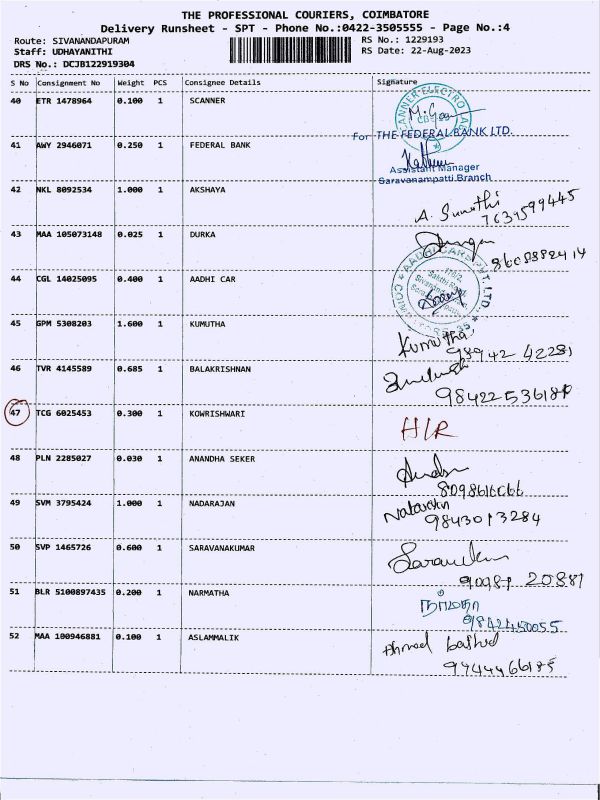 THE PROFESSIONAL COURIERS, COIMBATORE
Delivery Runsheet - SPT - Phone No.:0422-3505555 - Page No.:4
Route: SIVANANDAPURAM RS No.: 1229193
Staff: UDHAYANITHI RS Date: 22-Aug-2023
DRS No.: DCJB122919304
S No Consignment No Weight PCS Consignee Details Signature
40 ETR 1478964 0.100 1 SCANNER
For THE FEDERAL BANK LTD.
41 AWY 2946071 0.250 1 FEDERAL BANK
Assistant Manager
Saravanampatti Branch
42 NKL 8092534 1.000 1 AKSHAYA
A. Sumathi
7639599445
43 MAA 105073148 0.025 1 DURKA
8608882414
44 CGL 14025095 0.400 1 AADHI CAR
45 GPM 5308203 1.600 1 KUMUTHA
Kumutha
98942 42281
46 TVR 4145589 0.685 1 BALAKRISHNAN
47 TCG 6025453 0.300 1 KOWRISHWARI H/R
48 PLN 2285027 0.030 1 ANANDHA SEKER
49 SVM 3795424 1.000 1 NADARAJAN
Natarajan
9843013284
50 SVP 1465726 0.600 1 SARAVANAKUMAR
51 BLR 5100897435 0.200 1 NARMATHA
நர்மதா
9842450055
52 MAA 100946881 0.100 1 ASLAMMALIK
Ahmed
9744466185